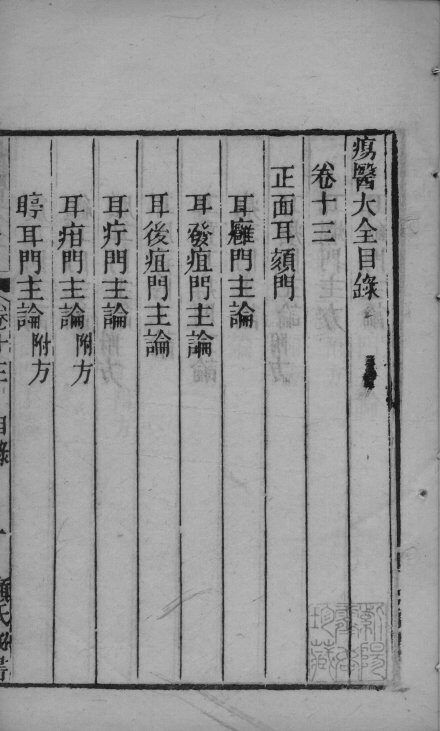 瘍醫大全目錄
卷十三
正面耳頦門
耳癰門主論
耳發疽門主論
耳後疽門主論
耳疔門主論
耳疳門主論 附方
聤耳門主論 附方
卷十三 目錄 一